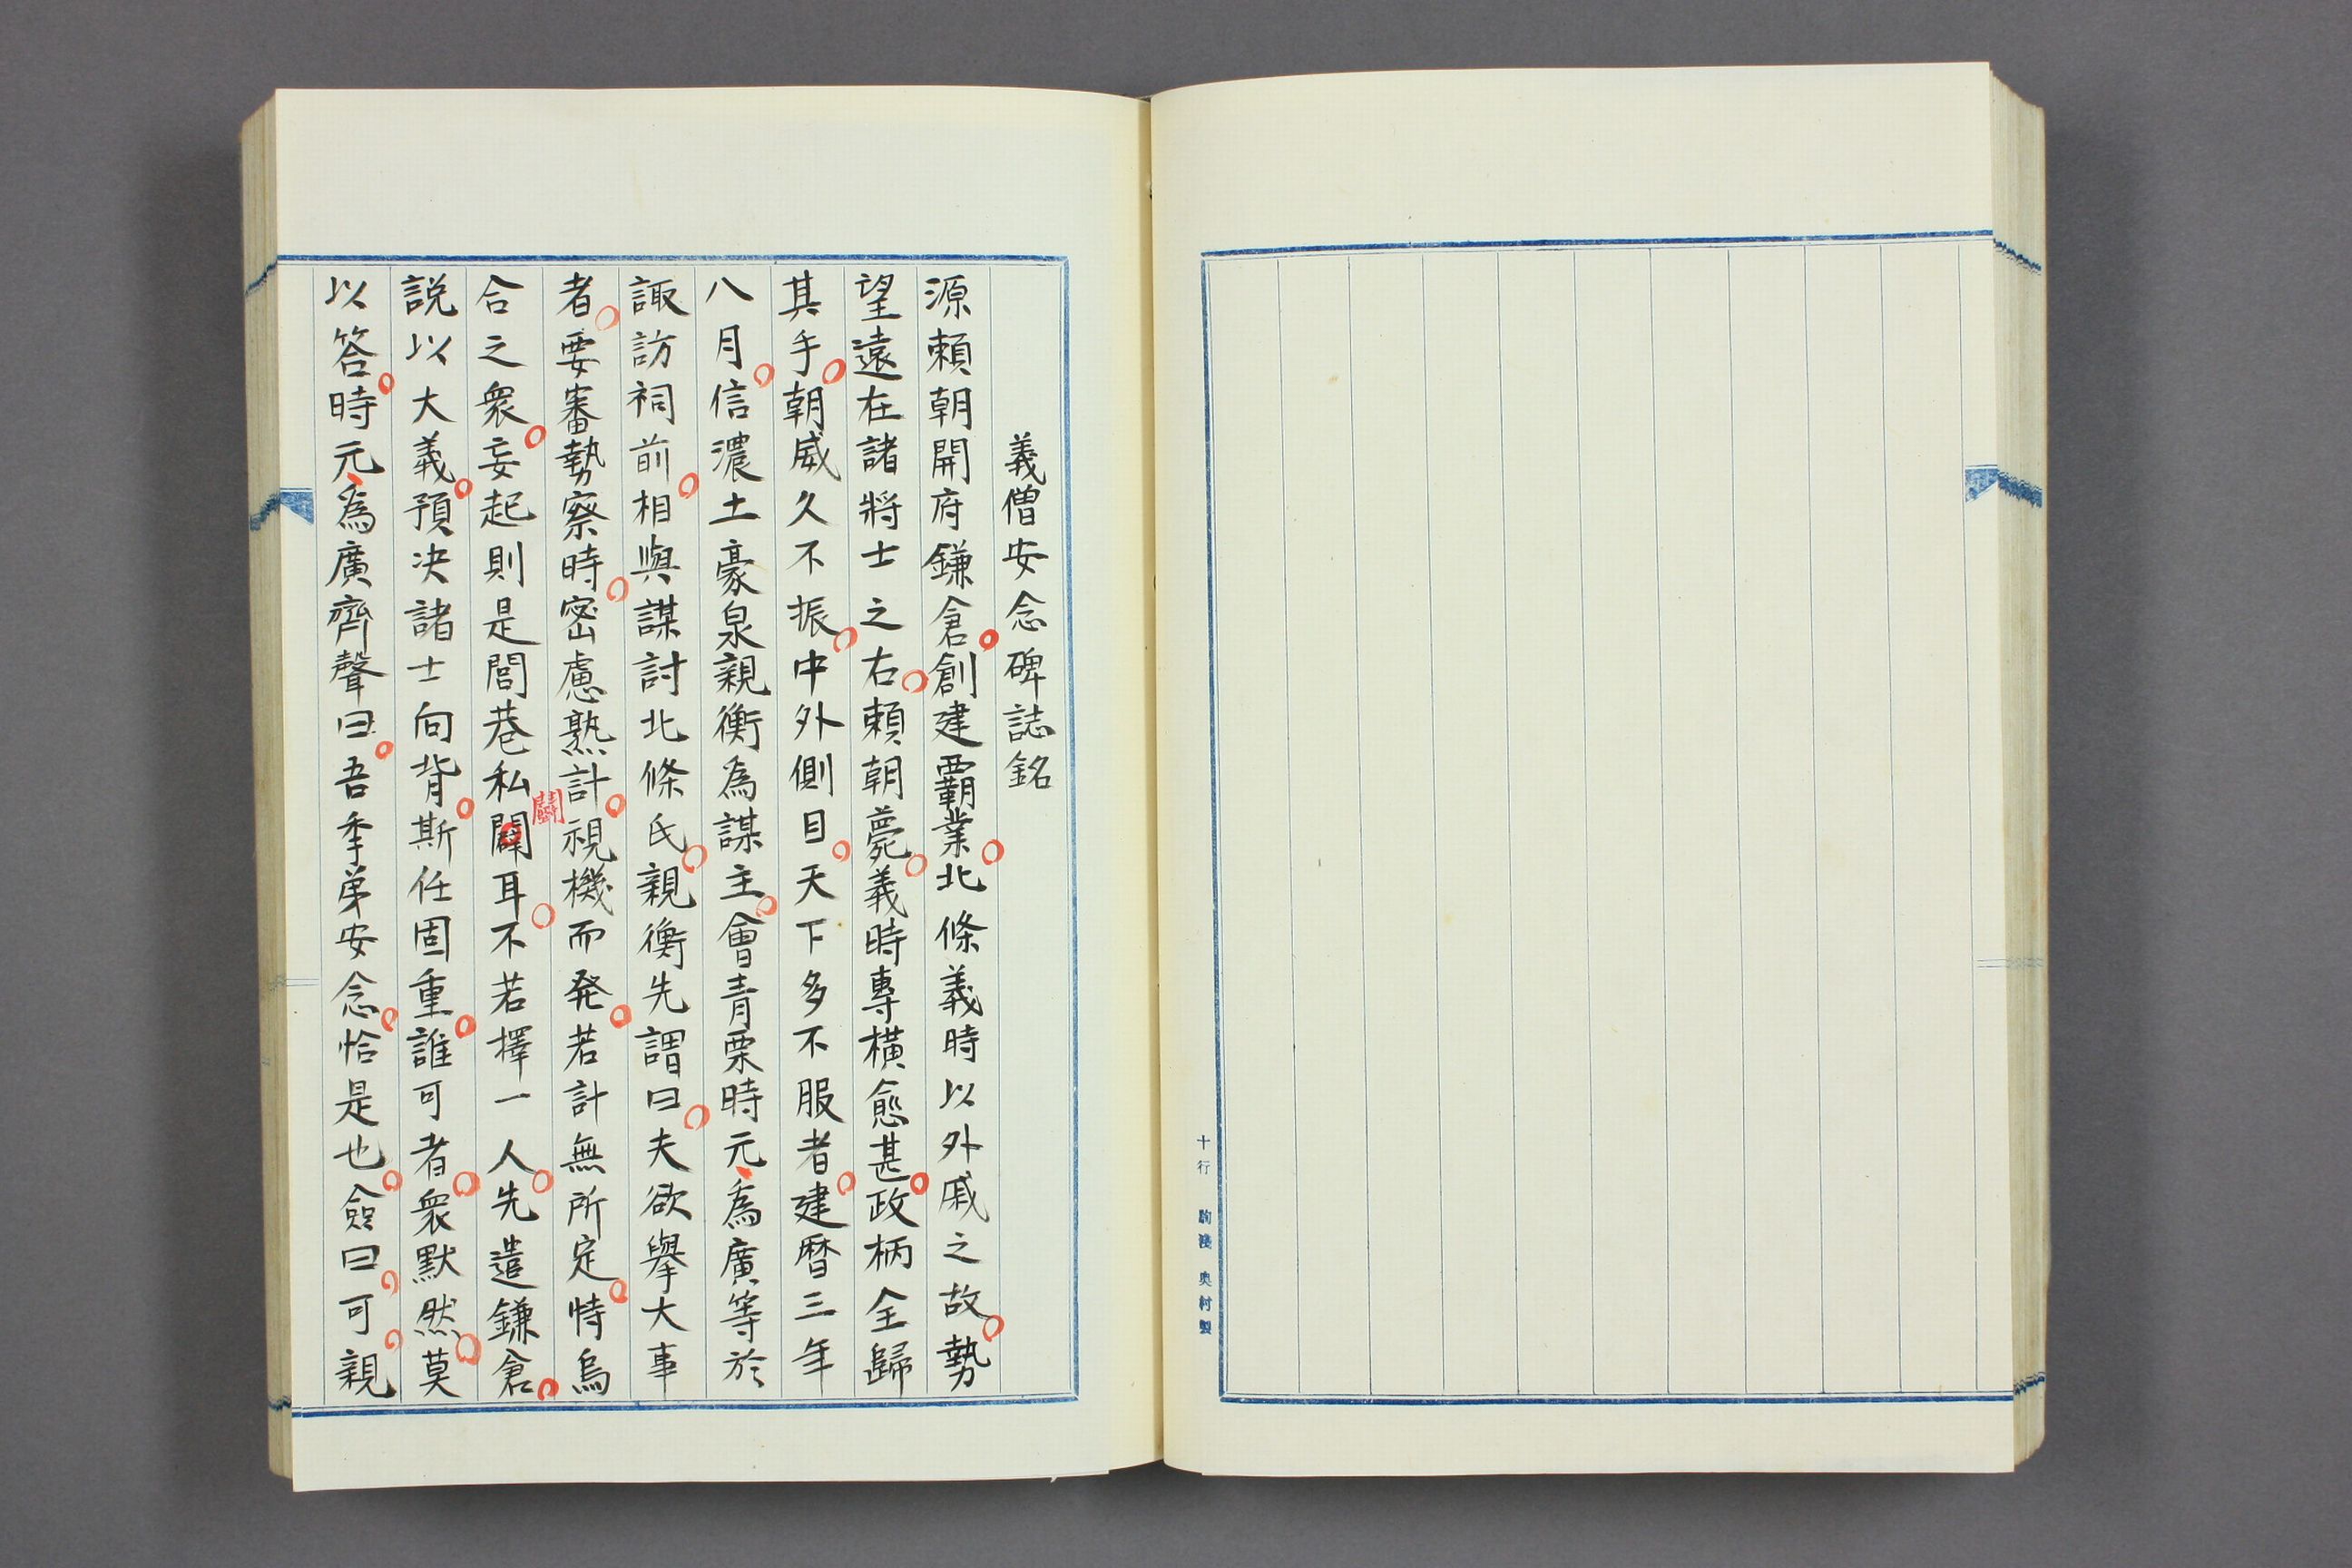 義僧安念碑誌銘
源頼朝開府鎌倉。創建覇業。北條義時以外戚之故。勢
望遠在諸將士之右。頼朝薨。義時專横愈甚。政柄全歸
其手。朝威久不振。中外側目。天下多不服者。建暦三年
八月。信濃土豪泉親衡為謀主。會青栗時元、為廣等於
諏訪祠前。相與謀討北條氏。親衡先謂曰。夫欲擧大事
者。要審勢察時。密慮熟計。視機而発。若計無所定。恃烏
合之衆。妄起則是閭巷私闘耳。不若擇一人。先遣鎌倉。
鬪
説以大義。預決諸士向背。斯任固重。誰可者。衆默然。莫
以答。時元、為廣齊聲曰。吾季弟安念。恰是也。僉曰。可。親
十行 駒淺 奥村製